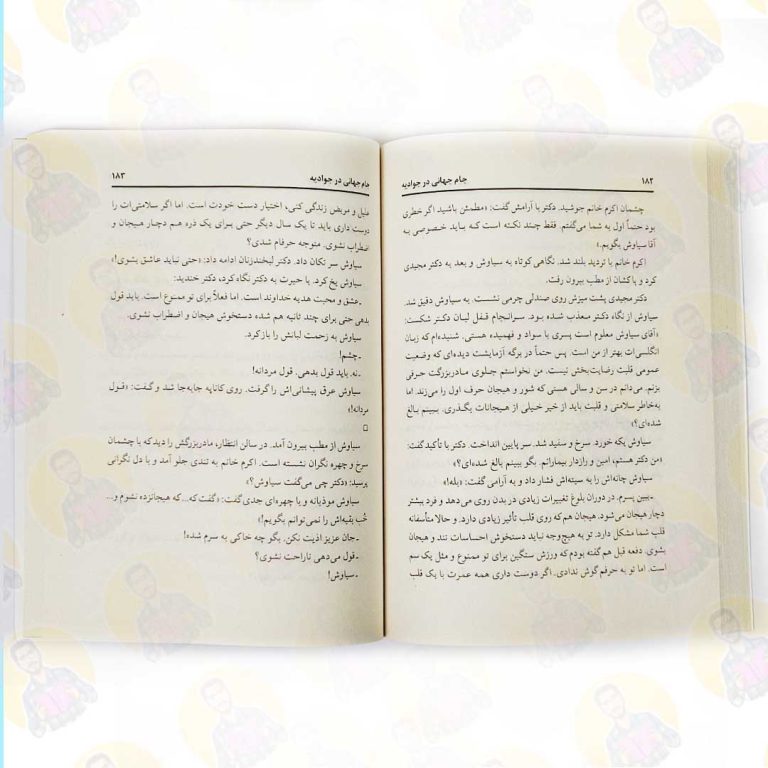 ۱۸۲ جام جهانی در جوادیه
چشمان اکرم خانم جوشید. دکتر با آرامش گفت: «مطمئن باشید اگر خطری
بود حتماً اول به شما می‌گفتم. فقط چند نکته است که باید خصوصی به
آقا سیاوش بگویم.»
اکرم خانم با تردید بلند شد. نگاهی کوتاه به سیاوش و بعد به دکتر مجیدی
کرد و پاکشان از مطب بیرون رفت.
دکتر مجیدی پشت میزش روی صندلی چرمی نشست. به سیاوش دقیق شد.
سیاوش از نگاه دکتر معذب شده بود. سرانجام قفل لبان دکتر شکست:
«آقای سیاوش معلوم است پسری با سواد و فهمیده هستی. شنیده‌ام که زبان
انگلیسی‌ات بهتر از من است. پس حتماً در برگه آزمایشت دیده‌ای که وضعیت
عمومی قلبت رضایت‌بخش نیست. من نخواستم جلوی مادربزرگت حرفی
بزنم. می‌دانم در سن و سالی هستی که شور و هیجان حرف اول را می‌زند اما
به‌خاطر سلامتی و قلبت باید از خیر خیلی از هیجانات بگذری. ببینم بالغ
شده‌ای؟»
سیاوش یکه خورد. سرخ و سفید شد. سر پایین انداخت. دکتر با تأکید گفت:
«من دکتر هستم، امین و رازدار بیمارانم. بگو ببینم بالغ شده‌ای؟»
سیاوش چانه‌اش را به سینه‌اش فشار داد و به آرامی گفت: «بله!»
ـ ببین پسرم. در دوران بلوغ تغییرات زیادی در بدن روی می‌دهد و فرد بیشتر
دچار هیجان می‌شود. هیجان هم که روی قلب تأثیر زیادی دارد. و حالا متأسفانه
قلب شما مشکل دارد. تو به هیچ‌وجه نباید دستخوش احساسات تند و هیجان
بشوی. دفعه قبل هم گفته بودم که ورزش سنگین برای تو ممنوع و مثل یک سم
است. اما تو به حرفم گوش ندادی. اگر دوست داری همه عمرت با یک قلب
جام جهانی در جوادیه ۱۸۳
علیل و مریض زندگی کنی، اختیار دست خودت است. اما اگر سلامتی‌ات را
دوست داری باید تا یک سال دیگر حتی برای یک ذره هم دچار هیجان و
اضطراب نشوی. متوجه حرفام شدی؟
سیاوش سر تکان داد. دکتر لبخندزنان ادامه داد: «حتی نباید عاشق بشوی!»
سیاوش یخ کرد. با حیرت به دکتر نگاه کرد، دکتر خندید:
ـ عشق و محبت هدیه خداوند است. اما فعلاً برای تو ممنوع است. باید قول
بدهی حتی برای چند ثانیه هم شده دستخوش هیجان و اضطراب نشوی.
سیاوش به زحمت لبانش را باز کرد.
ـ چشم!
ـ نه. باید قول بدهی. قول مردانه!
سیاوش عرق پیشانی‌اش را گرفت. روی کاناپه جابه‌جا شد و گفت: «قول
مردانه!»
□
سیاوش از مطب بیرون آمد. در سالن انتظار، مادربزرگش را دید که با چشمان
سرخ و چهره نگران نشسته است. اکرم خانم به تندی جلو آمد و با دل نگرانی
پرسید: «دکتر چی می‌گفت سیاوش؟»
سیاوش موذیانه و با چهره‌ای جدی گفت: «گفت که... که هیجانزده نشوم و...
خُب بقیه‌اش را نمی‌توانم بگویم!»
ـ جان عزیز اذیت نکن. بگو چه خاکی به سرم شده!
ـ قول می‌دهی ناراحت نشوی؟
ـ سیاوش!